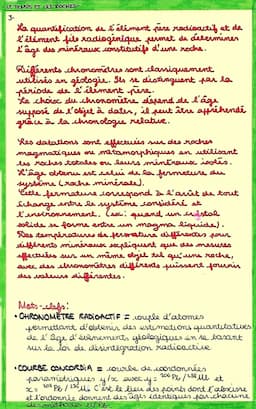 LE TEMPS ET LES ROCHES
3-
La quantification de l'élément père radioactif et de
l'élément fils radiogénique permet de déterminer
l'âge des minéraux constitutifs d'une roche.
Différents chronomètres sont classiquement
utilisés en géologie. Ils se distinguent par la
période de l'élément père.
Le choix du chronomètre dépend de l'âge
supposé de l'objet à dater, il peut être appréhendé
grâce à la chronologie relative.
Les datations sont effectuées sur des roches
magmatiques ou métamorphiques en utilisant
les roches totales ou leurs minéraux isolés.
L'âge obtenu est celui de la fermeture du
système (roche, minérale).
Cette fermeture correspond à l'arrêt de tout
échange entre le système considéré et
l'environnement. (ex: quand un cristal
solide se forme entre un magma liquide).
Des températures de fermeture différentes pour
différents minéraux expliquent que des mesures
effectuées sur un même objet tel qu'une roche,
avec des chronomètres différents puissent fournir
des valeurs différentes.
Mots-clefs:
• CHRONOMÈTRE RADIOACTIF = couple d'atomes
permettant d'obtenir des estimations quantitatives
de l'âge d'évènements géologiques en se basant
sur la loi de désintégration radioactive
• COURBE CONCORDIA = courbe de coordonnées
paramétriques x/z avec y: 206 Pb / 238 U et
207 Pb / 235 U. C'est le lieu des points dont l'abscisse
et l'ordonnée donnent des âges identiques par chacune